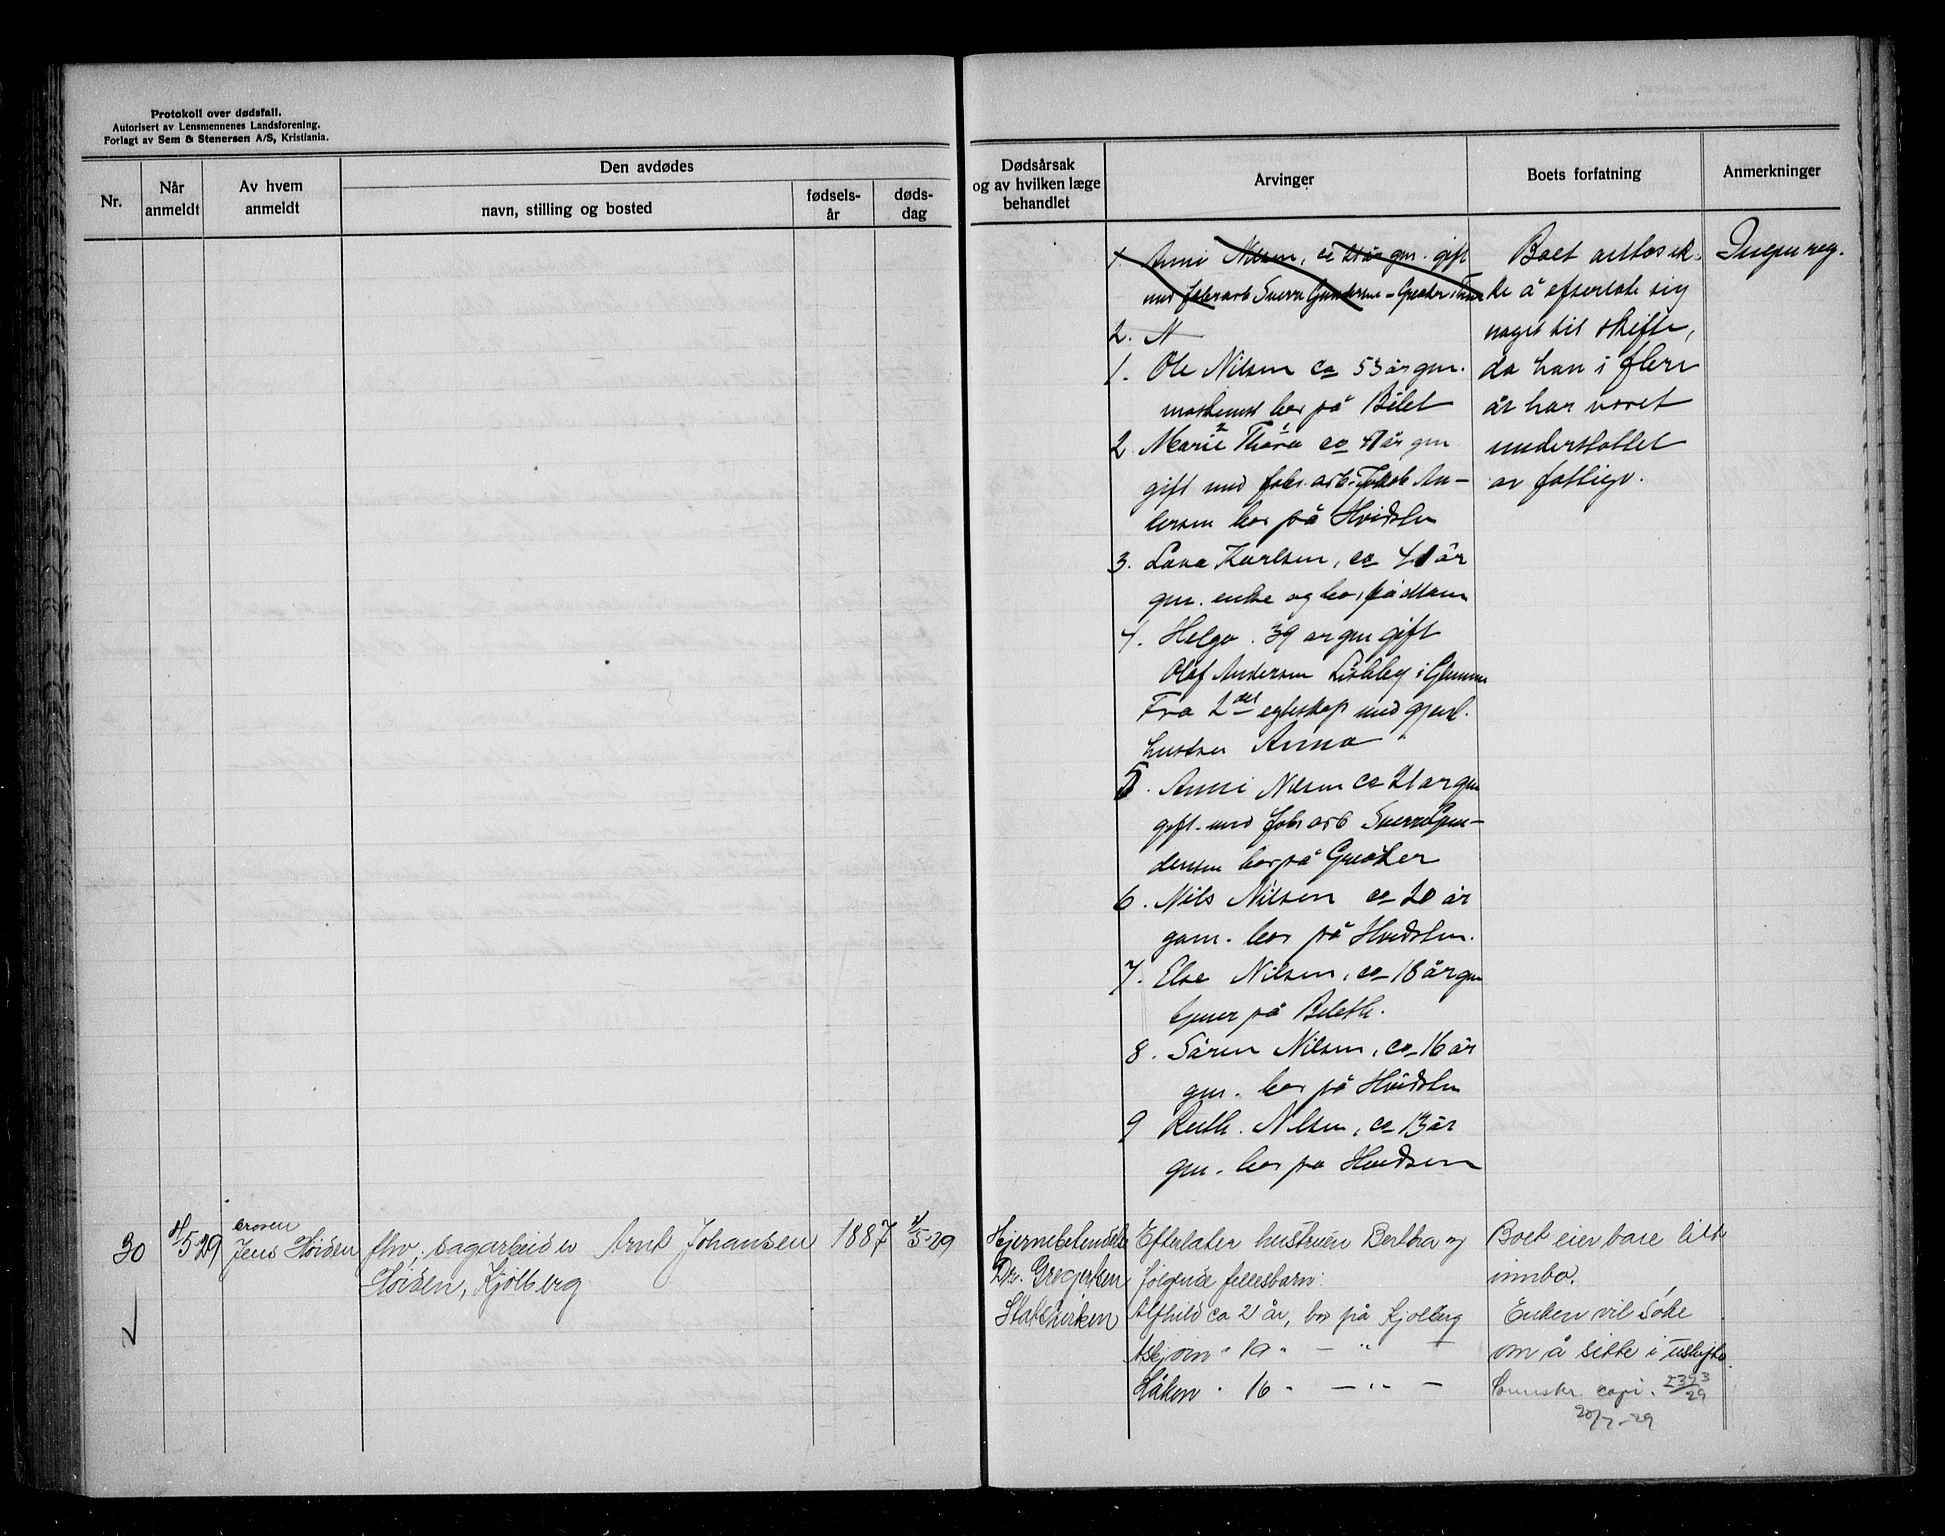 Protokoll over dødsfall.
Autorisert av Lensmennenes Landsforening.
Forlagt av Sem & Stenersen A/S, Kristiania.
Nr.
Når anmeldt
Av hvem anmeldt
Den avdødes
navn, stilling og bosted
fødsels-år
døds-dag
Dødsårsak
og av hvilken læge
behandlet
Arvinger
Boets forfatning
Anmerkninger
1. Anni Nilsen, ca 21 år gm. gift
med fabr.arb Sverre Gundersen - Greaker i Tune
2. N
1. Ole Nilsen ca 53 år gm.
bor på Bilet
2. Marie Thora ca 47 år gm
gift med fabr. arb. Jakob An-
dersen bor på Hvidsten
3. Lava Karlsen, ca 41 år
gm. enke og bor på Moum
4. Helga. 39 ar gm gift
Olaf Andersen Lisleby i Glemmen
Fra 2det egteskap med gjenl.
hustru Anna
5. Anni Nilsen ca 21 ar gm
gift. med fabr arb Sverre Gun-
dersen bor på Greaker
6. Nils Nilsen ca 20 år
gam. bor på Hvidsten.
7. Else Nilsen, ca 18 år gm
tjener på Bileth.
8. Sören Nilsen, ca 16 år
gm. bor på Hvidsten
9 Ruth. Nilsen, ca 13 år
gm. bor pa Hvidsen
Boet antas ik-
ke å efterlate sig
noget til skifte,
da han i flere
år har været
understøttet
av fattigv.
Ingen reg.
30
4/5 29
broren
Jens Höiden
fhv. sagarbeider Arnt Johansen
Höiden, Kjölberg
1887
4/5-29
Hjernebetendelse
Dr. Gregersen
Statskirken
Efterlater hustruen Bertha og
følgende fellesbarn:
Alfhild ca 21 år, bor på Kjølberg
Asbjørn " 19 " — " —
Håkon " 16 " — " —
Boet eier bare litt
innbo.
Enken vil söke
om å sitte i uskifte.
copi. 2393/29
20/7-29